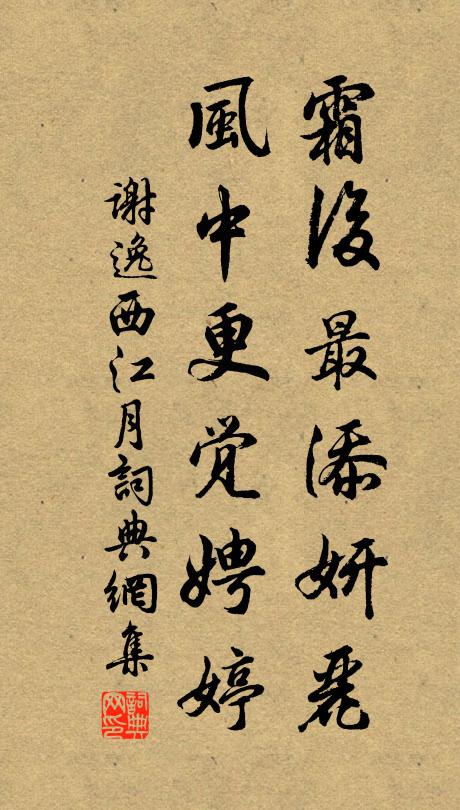 霜後最添妍麗
風中更覺娉婷
謝逸西江月詞典網集
詞典网印